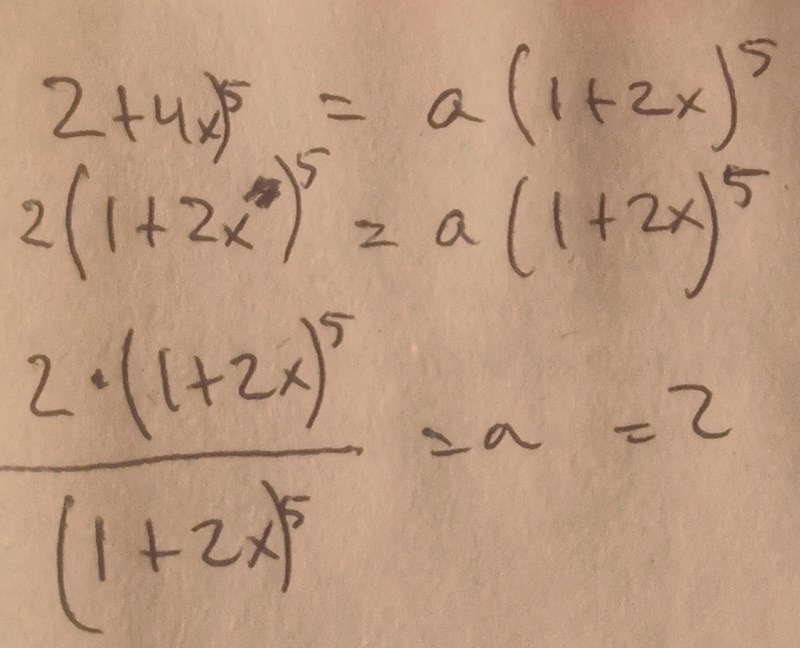 2+4x)^5 = a(1+2x)^5
2(1+2x)^5 = a(1+2x)^5
2·(1+2x)^5 / (1+2x)^5 = a = 2